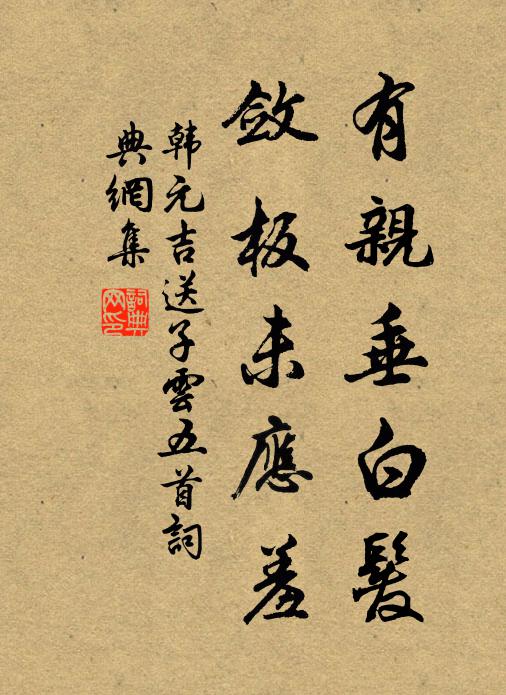 有親垂白髮
斂板未應羞
韩元吉送子雲五首詞
典網集
詞典網印